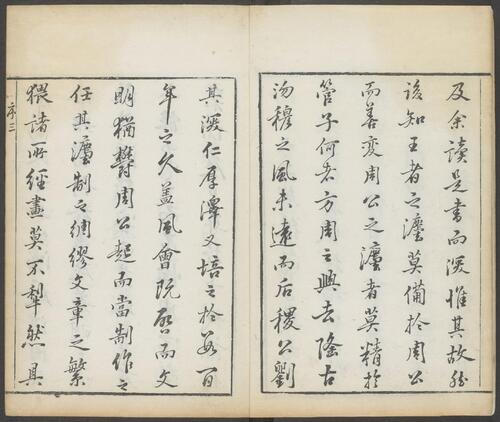 及余讀是書而深惟其故然
後知王者之灋莫備於周公
而善變周公之灋者莫精於
管子何者方周之興去隆古
沕穆之風未遠而后稷公劉
其深仁厚澤又培之於數百
年之久蓋風會既啟而文
明猶鬱周公起而當制作之
任其灋制之綢繆文章之繁
猥諸所經畫莫不犂然具
序三